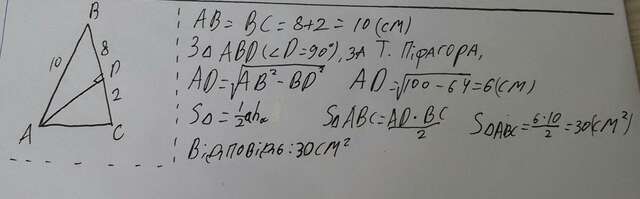 B
10
8
D
2
A
C
AB = BC = 8+2 = 10 (см)
З △ ABD (∠D = 90°), за т. Піфагора,
AD = √AB² − BD² AD = √100 − 64 = 6 (см)
S△ = ½ahₐ S△ABC = AD · BC / 2 S△ABC = 6·10 / 2 = 30 (см²)
Відповідь: 30 см²